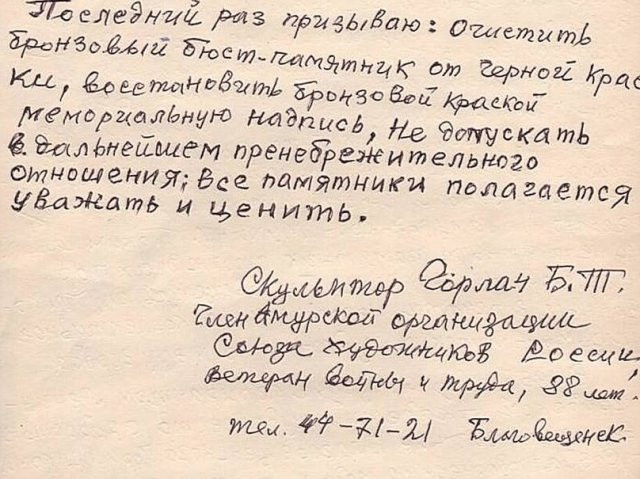 Последний раз призываю: Очистить
бронзовый бюст-памятник от черной крас
ки, восстановить бронзовой краской
мемориальную надпись, Не допускать
в дальнейшем пренебрежительного
отношения; все памятники полагается
уважать и ценить.
Скульптор Горлач Б.Т.
Член Амурской организации
Союза художников России,
ветеран войны и труда, 88 лет.
тел. 44-71-21 Благовещенск.